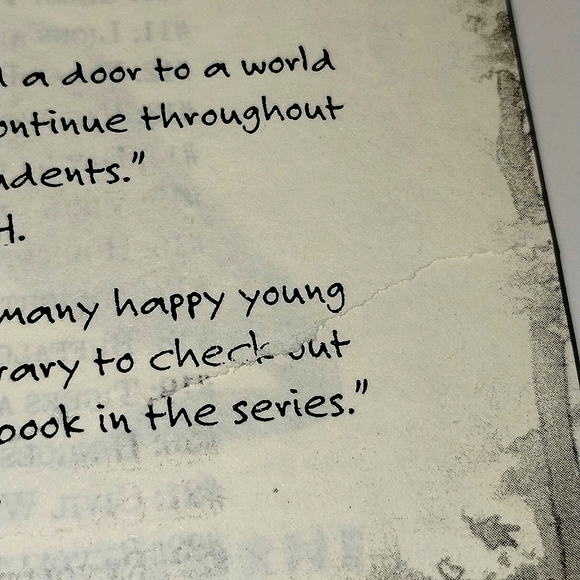 a door to a world
ontinue throughout
udents."
H.
many happy young
rary to check out
book in the series."